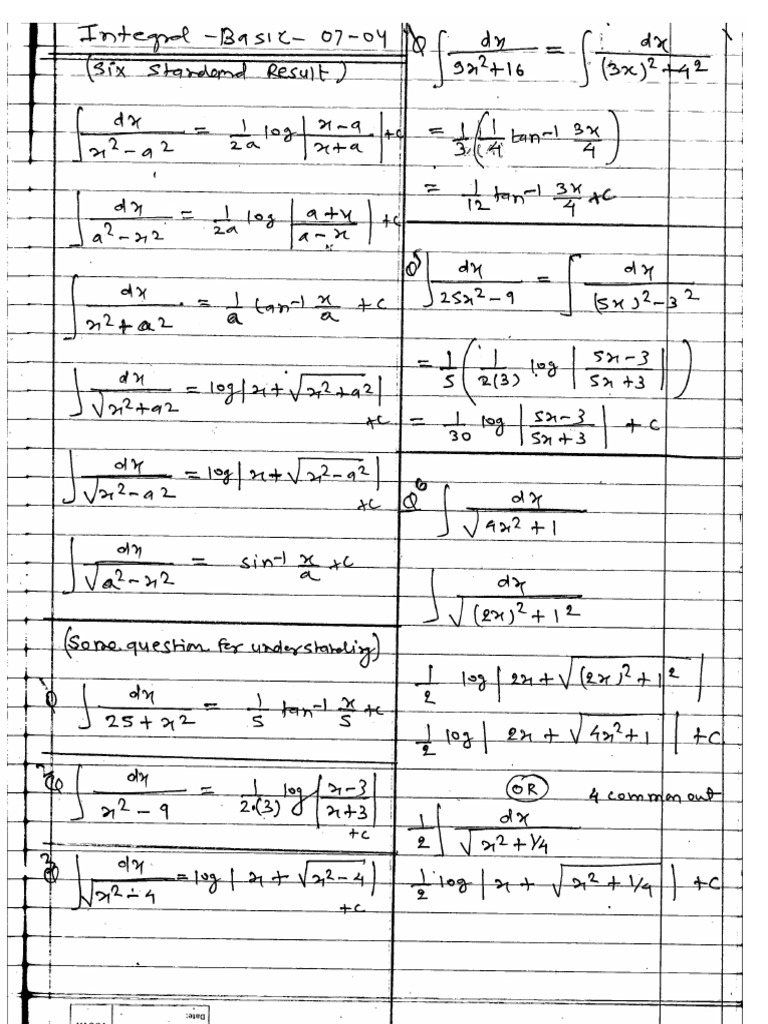 Integral - Basic - 07-04
(Six Standard Result)
∫ dx/(x² - a²) = 1/2a log |(x-a)/(x+a)| + c
∫ dx/(a² - x²) = 1/2a log |(a+x)/(a-x)| + c
∫ dx/(x² + a²) = 1/a tan⁻¹ x/a + c
∫ dx/√(x²+a²) = log |x + √(x²+a²)| + c
∫ dx/√(x²-a²) = log |x + √(x²-a²)| + c
∫ dx/√(a²-x²) = sin⁻¹ x/a + c
(Some question for understanding)
∫ dx/(25+x²) = 1/5 tan⁻¹ x/5 + c
2Q ∫ dx/(x²-9) = 1/2·(3) log |(x-3)/(x+3)| + c
3Q ∫ dx/√(x²-4) = log |x + √(x²-4)| + c
Q ∫ dx/(9x²+16) = ∫ dx/((3x)²+4²)
= 1/3 (1/4 tan⁻¹ 3x/4)
= 1/12 tan⁻¹ 3x/4 + c
Q5 ∫ dx/(25x²-9) = ∫ dx/((5x)²-3²)
= 1/5 (1/2(3) log |(5x-3)/(5x+3)|)
= 1/30 log |(5x-3)/(5x+3)| + c
Q6 ∫ dx/√(4x²+1)
∫ dx/√((2x)²+1²)
1/2 log |2x + √((2x)²+1²)|
1/2 log |2x + √(4x²+1)| + c
OR 4 common out
1/2 ∫ dx/√(x²+1/4)
1/2 log |x + √(x²+1/4)| + c
Date: